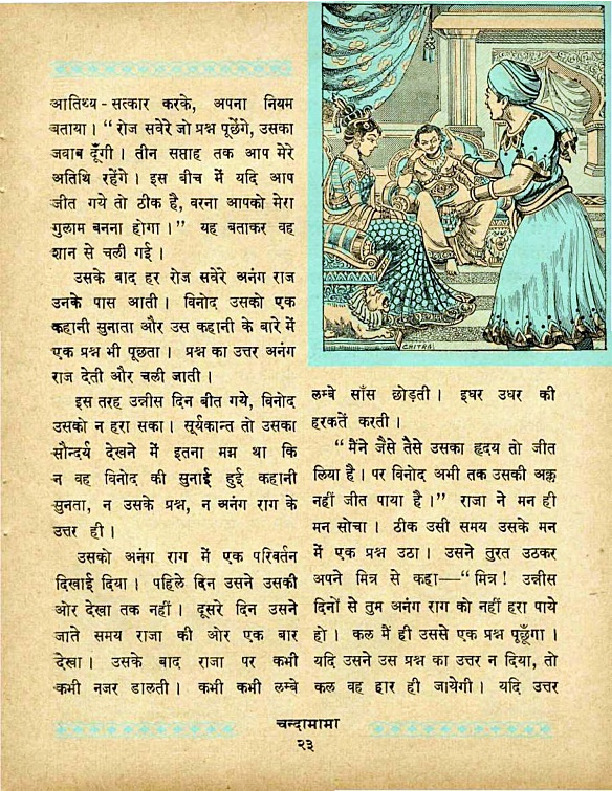 आतिथ्य - सत्कार करके, अपना नियम
बताया। “रोज सवेरे जो प्रश्न पूछेंगे, उसका
जवाब दूँगी। तीन सप्ताह तक आप मेरे
अतिथि रहेंगे। इस बीच में यदि आप
जीत गये तो ठीक है, वरना आपको मेरा
गुलाम बनना होगा।” यह बताकर वह
शान से चली गई।
उसके बाद हर रोज सवेरे अनंग राज
उनके पास आती। विनोद उसको एक
कहानी सुनाता और उस कहानी के बारे में
एक प्रश्न भी पूछता। प्रश्न का उत्तर अनंग
राज देती और चली जाती।
इस तरह उन्नीस दिन बीत गये, विनोद
उसको न हरा सका। सूर्यकान्त तो उसका
सौन्दर्य देखने में इतना मग्न था कि
न वह विनोद की सुनाई हुई कहानी
सुनता, न उसके प्रश्न, न अनंग राग के
उत्तर ही।
उसको अनंग राग में एक परिवर्तन
दिखाई दिया। पहिले दिन उसने उसकी
ओर देखा तक नहीं। दूसरे दिन उसने
जाते समय राजा की ओर एक बार
देखा। उसके बाद राजा पर कभी
कभी नजर डालती। कभी कभी लम्बे
CHITRA
लम्बे साँस छोड़ती। इधर उधर की
हरकतें करती।
“मैंने जैसे तैसे उसका हृदय तो जीत
लिया है। पर विनोद अभी तक उसकी अक्ल
नहीं जीत पाया है।” राजा ने मन ही
मन सोचा। ठीक उसी समय उसके मन
में एक प्रश्न उठा। उसने तुरत उठकर
अपने मित्र से कहा—“मित्र! उन्नीस
दिनों से तुम अनंग राग को नहीं हरा पाये
हो। कल मैं ही उससे एक प्रश्न पूछूँगा।
यदि उसने उस प्रश्न का उत्तर न दिया, तो
कल वह हार ही जायेगी। यदि उत्तर
चन्दामामा
२३